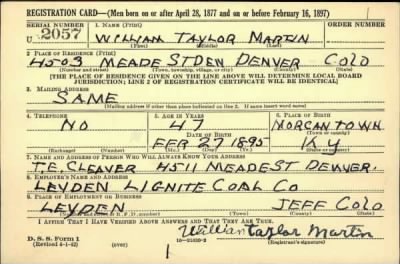 REGISTRATION CARD—(Men born on or after April 28, 1877 and on or before February 16, 1897)
SERIAL NUMBER
1. NAME (Print)
U 2057
WILLIAM TAYLOR MARTIN
(First) (Middle) (Last)
2. PLACE OF RESIDENCE (Print)
4503 MEADE ST DEN DENVER COLO
(Number and street) (Town, township, village, or city) (County) (State)
[THE PLACE OF RESIDENCE GIVEN ON THE LINE ABOVE WILL DETERMINE LOCAL BOARD
JURISDICTION; LINE 2 OF REGISTRATION CERTIFICATE WILL BE IDENTICAL]
3. MAILING ADDRESS
SAME
[Mailing address if other than place indicated on line 2. If same insert word same]
4. TELEPHONE
5. AGE IN YEARS
6. PLACE OF BIRTH
NO
47
MORGANTOWN
DATE OF BIRTH
(Town or county)
FEB 27 1895
KY
(Exchange) (Number) (Mo.) (Day) (Yr.) (State or country)
7. NAME AND ADDRESS OF PERSON WHO WILL ALWAYS KNOW YOUR ADDRESS
T.E CLEAVER 4511 MEADE ST DENVER.
8. EMPLOYER'S NAME AND ADDRESS
LEYDEN LIGNITE COAL CO
9. PLACE OF EMPLOYMENT OR BUSINESS
LEYDEN JEFF COLO
(Number and street or R. F. D. number) (Town) (County) (State)
I AFFIRM THAT I HAVE VERIFIED ABOVE ANSWERS AND THAT THEY ARE TRUE.
D. S. S. Form 1
(Revised 4-1-42) (over)
William Taylor Martin
(Registrant's signature)